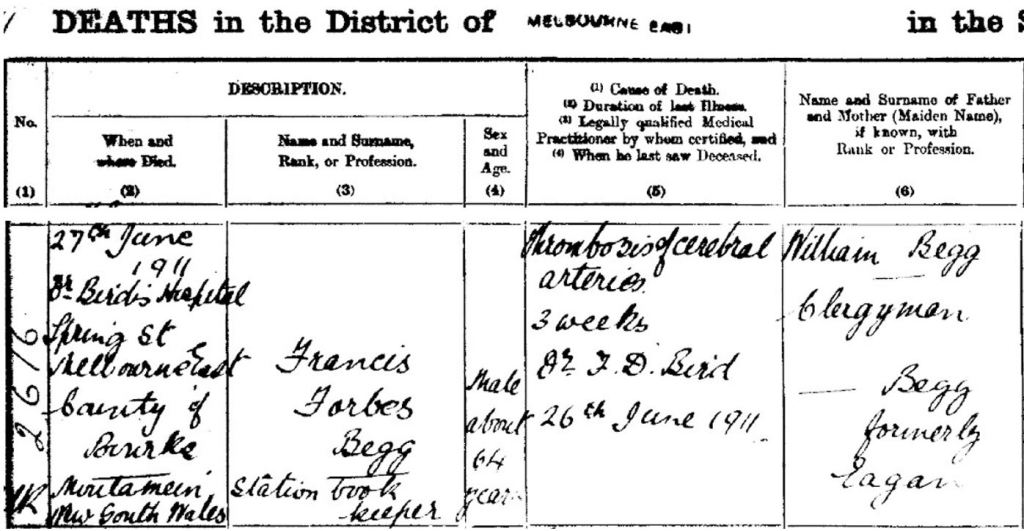 DEATHS in the District of MELBOURNE EAST in the
DESCRIPTION.
No.
(1)
When and
where Died.
(2)
Name and Surname,
Rank, or Profession.
(3)
Sex
and
Age.
(4)
(1) Cause of Death.
(2) Duration of last Illness.
(3) Legally qualified Medical
Practitioner by whom certified, and
(4) When he last saw Deceased.
(5)
Name and Surname of Father
and Mother (Maiden Name),
if known, with
Rank or Profession.
(6)
27th June
1911
Dr Bird's Hospital
Spring St
Melbourne East
County of
Bourke
New South Wales
Francis
Forbes
Begg
Station book
keeper
Male
about
64
years
Thrombosis of cerebral
arteries
3 weeks
Dr. F. D. Bird
26th June 1911
William Begg
Clergyman
— Begg
formerly
Eagan